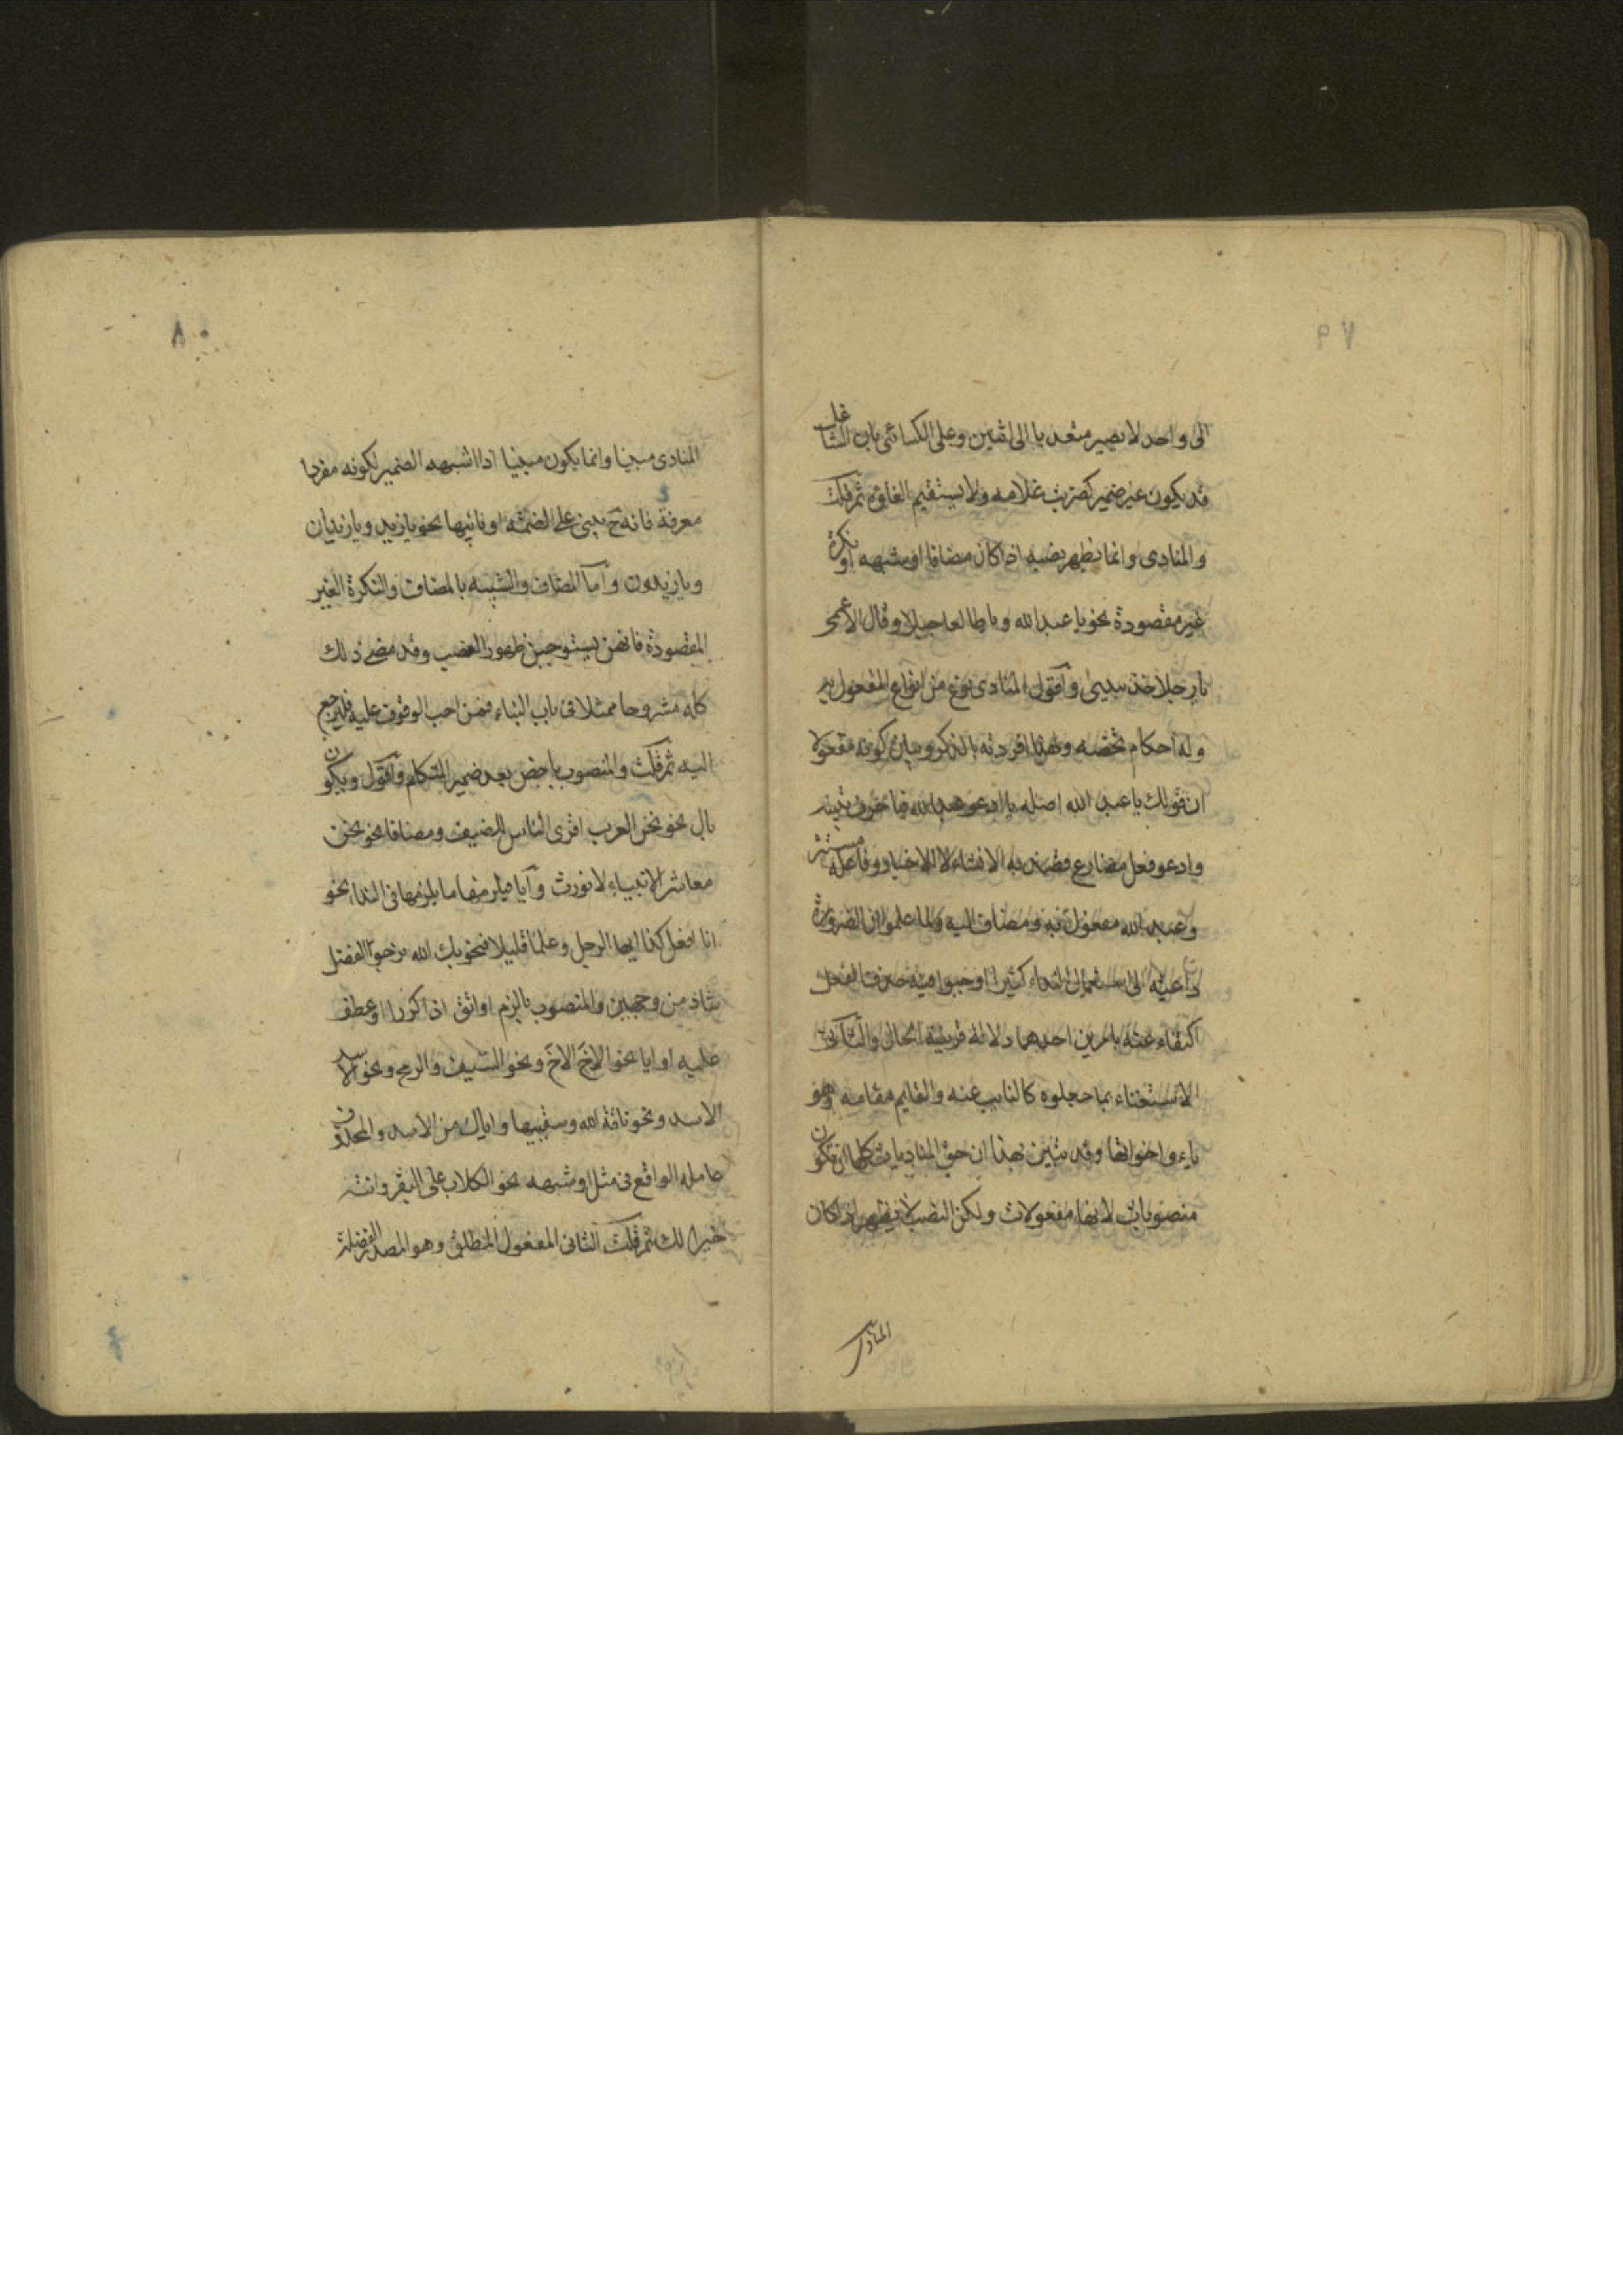 ٧٩
الى واحد لا يصير متعديا الى اثنين وعلى الكسائى بان الشاغل
قد يكون غير ضمير كضربت غلامه ولا يستقيم الغاؤه ثم قلت
والمنادى وانما يظهر نصبه اذا كان مضافا او شبهه او نكرة
غير مقصودة نحو يا عبد الله ويا طالعا جبلا وقال الاعمى
يا رجلا خذ بيدى واقول المنادى نوع من انواع المفعول به
وله احكام تخصه ولهذا افردته بالذكر وبيان كونه مفعولا
ان قولك يا عبد الله اصله يا ادعو عبد الله فيا حرف تنبيه
وادعو فعل مضارع قصد به الانشاء لا الاخبار وفاعله مستتر
وعبد الله مفعول به ومضاف اليه ولما علموا ان الضرورة
داعية الى استعمال النداء كثيرا اوجبوا فيه حذف الفعل
اكتفاء عنه بامرين احدهما دلالة قرينة الحال والثانى
الاستغناء بما جعلوه كالنايب عنه والقايم مقامه وهو
ياء واخواتها وقد تبين بهذا ان حق المناديات كلها ان تكون
منصوبات لانها مفعولات ولكن النصب لا يظهر اذا كان
المنادى
٨٠
المنادى مبنيا وانما يكون مبنيا اذا اشبهه الضمير لكونه مفردا
معرفة فانه ح يبنى على الضمة او نائبها نحو يا زيد ويا زيدان
ويا زيدون واما المضاف والشبيه بالمضاف والنكرة الغير
المقصودة فانهن يستوجبن ظهور النصب وقد مضى ذلك
كله مشروحا ممثلا فى باب البناء فمن احب الوقوف عليه فليرجع
اليه ثم قلت والمنصوب باخص بعد ضمير المتكلم واقول ويكون
بال نحو نحن العرب اقرى الناس للضيف ومضافا نحو نحن
معاشر الانبياء لا نورث وايا فيلزمها ما يلزمها فى النداء نحو
انا افعل كذا ايها الرجل وعلما قليلا فنحو بك الله نرجو الفضل
شاذ من وجهين والمنصوب بالزم او اتق اذا كررا او عطف
عليه او ايا نحو الاخ الاخ ونحو السيف والرمح ونحو الاسد
الاسد ونحو ناقة الله وسقييها واياك من الاسد والمحذوف
عامله الواقع فى مثل او شبهه نحو الكلاب على البقر وانته
خيرا لك ثم قلت الثانى المفعول المطلق وهو المصدر الفضلة